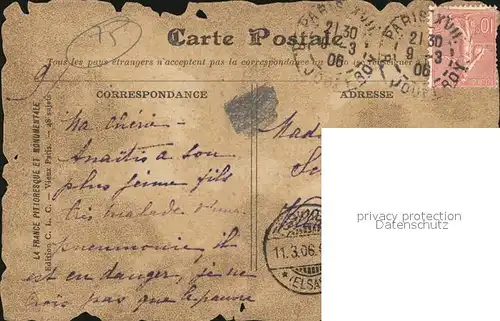 75
Carte Postale
Tous les pays étrangers n'acceptent pas la correspondance au
CORRESPONDANCE
ADRESSE
LA FRANCE PITTORESQUE ET MONUMENTALE
Edition C. L. C. — Vieux Paris. — 48 sujets
PARIS XVII
21 30
9 - 3
06
PARIS XVII
21 30
9 - 3
06
10
Ma chérie -
a son
plus jeune fils
très malade d'une
pneumonie, il
est en danger, je ne
crois pas que le pauvre
Mad
11.3.06.
(ELSA
privacy protection